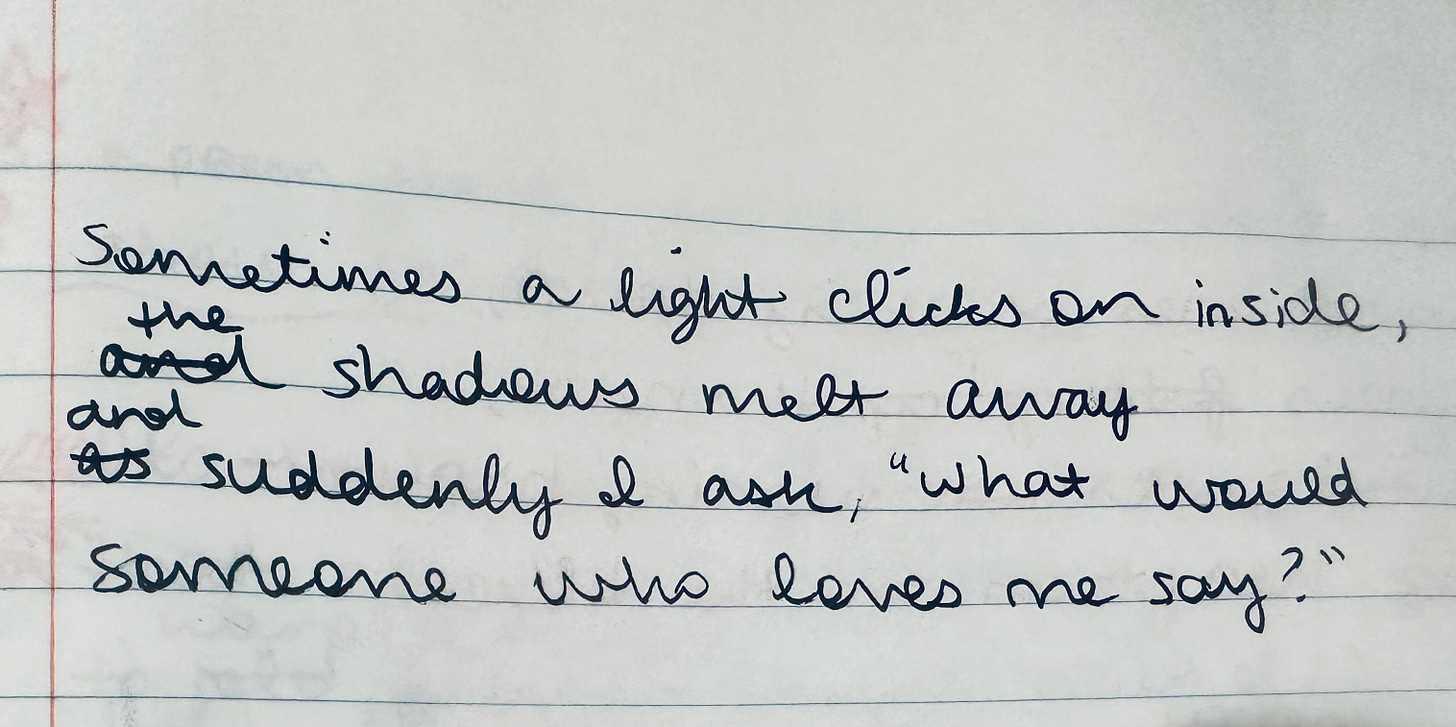 Sometimes a light clicks on inside,
the
and shadows melt away
and
as suddenly I ask, "what would
someone who loves me say?"